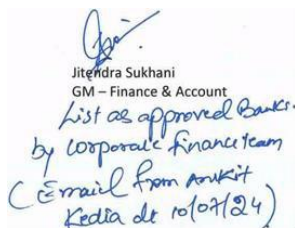 Jitendra Sukhani
GM – Finance & Account
List as approved Banks.
by corporate finance team
(Email from Ankit
Kedia dt 10/07/24)